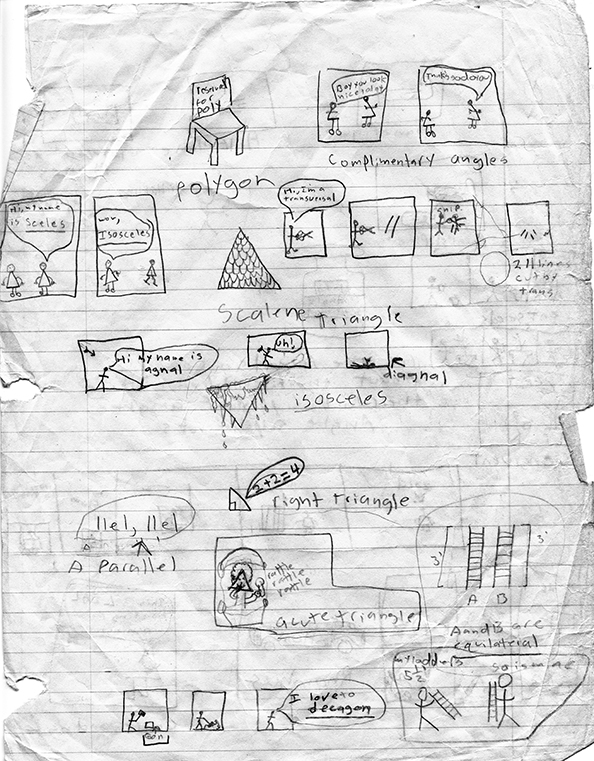 reserved
for
poly
polygon
Boy you look
nice today
Complimentary angles
Hi, my name
is Sceles
wow,
Isosceles
Hi, I'm a
transversal
snip
2 // lines
cut by
trans
Scalene triangle
Hi My name is
agnal
uh!
diagnal
isosceles
2+2=4
right triangle
llel, llel
A parallel
rattle
rattle
rattle
acute triangle
3'
3'
A B
A and B are
equilateral
my ladder's
5 1/2
so is mine
I love to
decagon